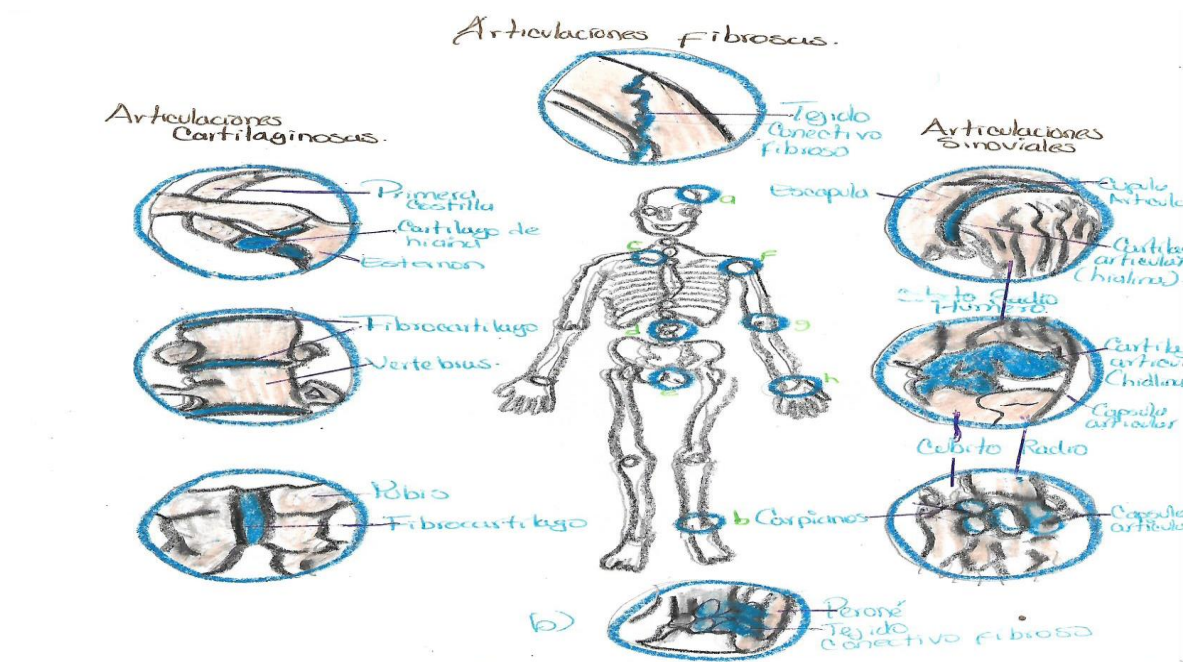 Articulaciones Fibrosas.
Tejido
Conectivo
fibroso
Articulaciones
Cartilaginosas.
Primera
costilla
Cartilago de
Esternon
Fibrocartilago
Vertebras.
Pubis
Fibrocartilago
a
c
f
d
g
e
h
b
Articulaciones
Sinoviales
Escapula
Articula
Cartila
articular
(hialina)
Humero.
Cartila
articu
Capsula
articular
Cubito Radio
Carpianos
Capsula
articula
b)
Peroné
Tejido
Conectivo fibroso